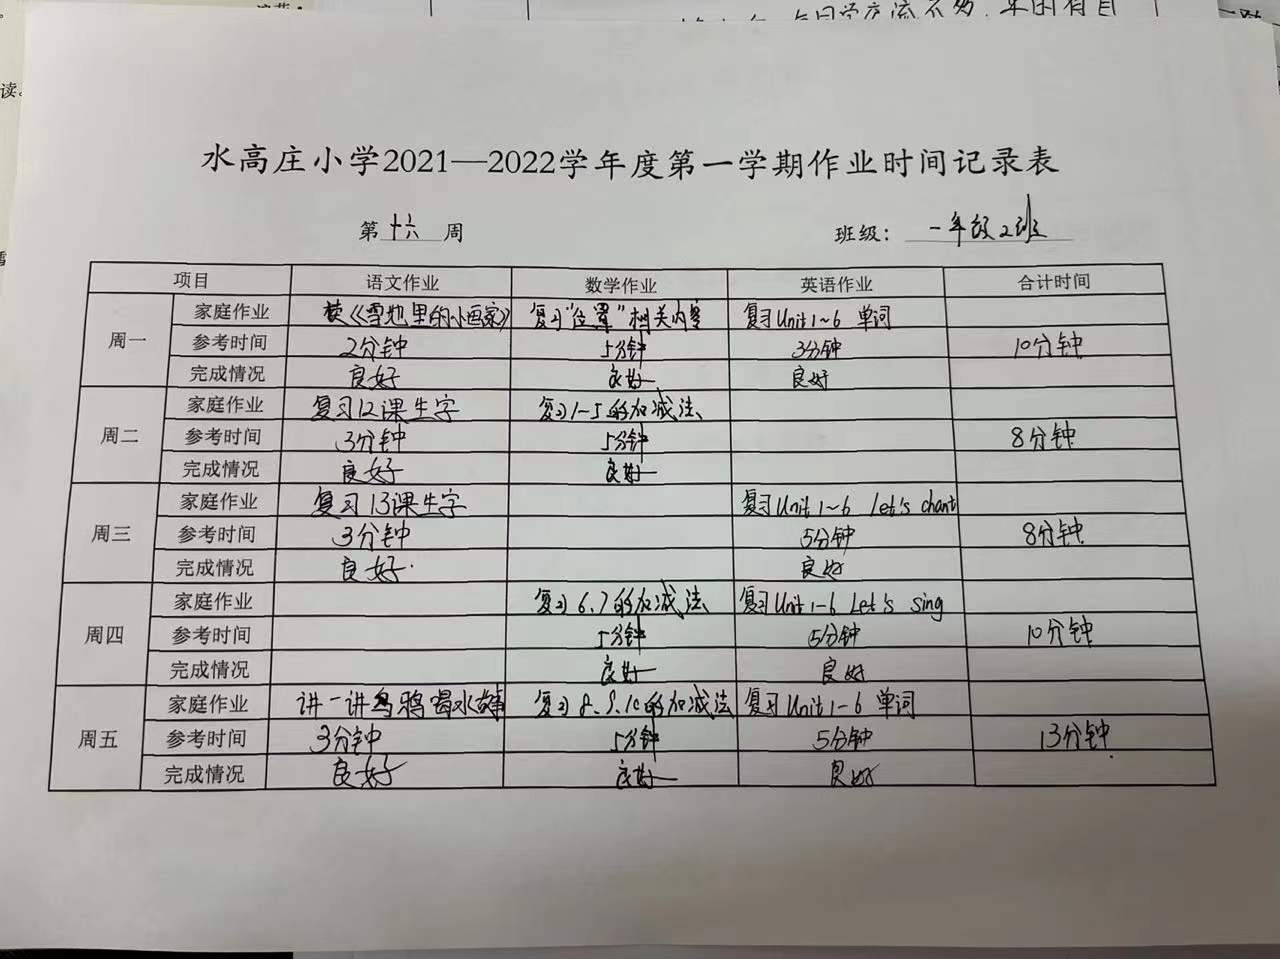 水高庄小学2021—2022学年度第一学期作业时间记录表
第十六周 班级：一年级2班
项目 语文作业 数学作业 英语作业 合计时间
周一 家庭作业 读《雪地里的小画家》 复习“位置”相关内容 复习Unit1~6 单词
参考时间 2分钟 5分钟 3分钟 10分钟
完成情况 良好 良好 良好
周二 家庭作业 复习12课生字 复习1-5的加减法
参考时间 3分钟 5分钟 8分钟
完成情况 良好 良好
周三 家庭作业 复习13课生字 复习Unit1~6 let's chant
参考时间 3分钟 5分钟 8分钟
完成情况 良好 良好
周四 家庭作业 复习6、7的加减法 复习Unit1-6 Let's sing
参考时间 5分钟 5分钟 10分钟
完成情况 良好 良好
周五 家庭作业 讲一讲乌鸦喝水故事 复习8、9、10的加减法 复习Unit1-6 单词
参考时间 3分钟 5分钟 5分钟 13分钟
完成情况 良好 良好 良好